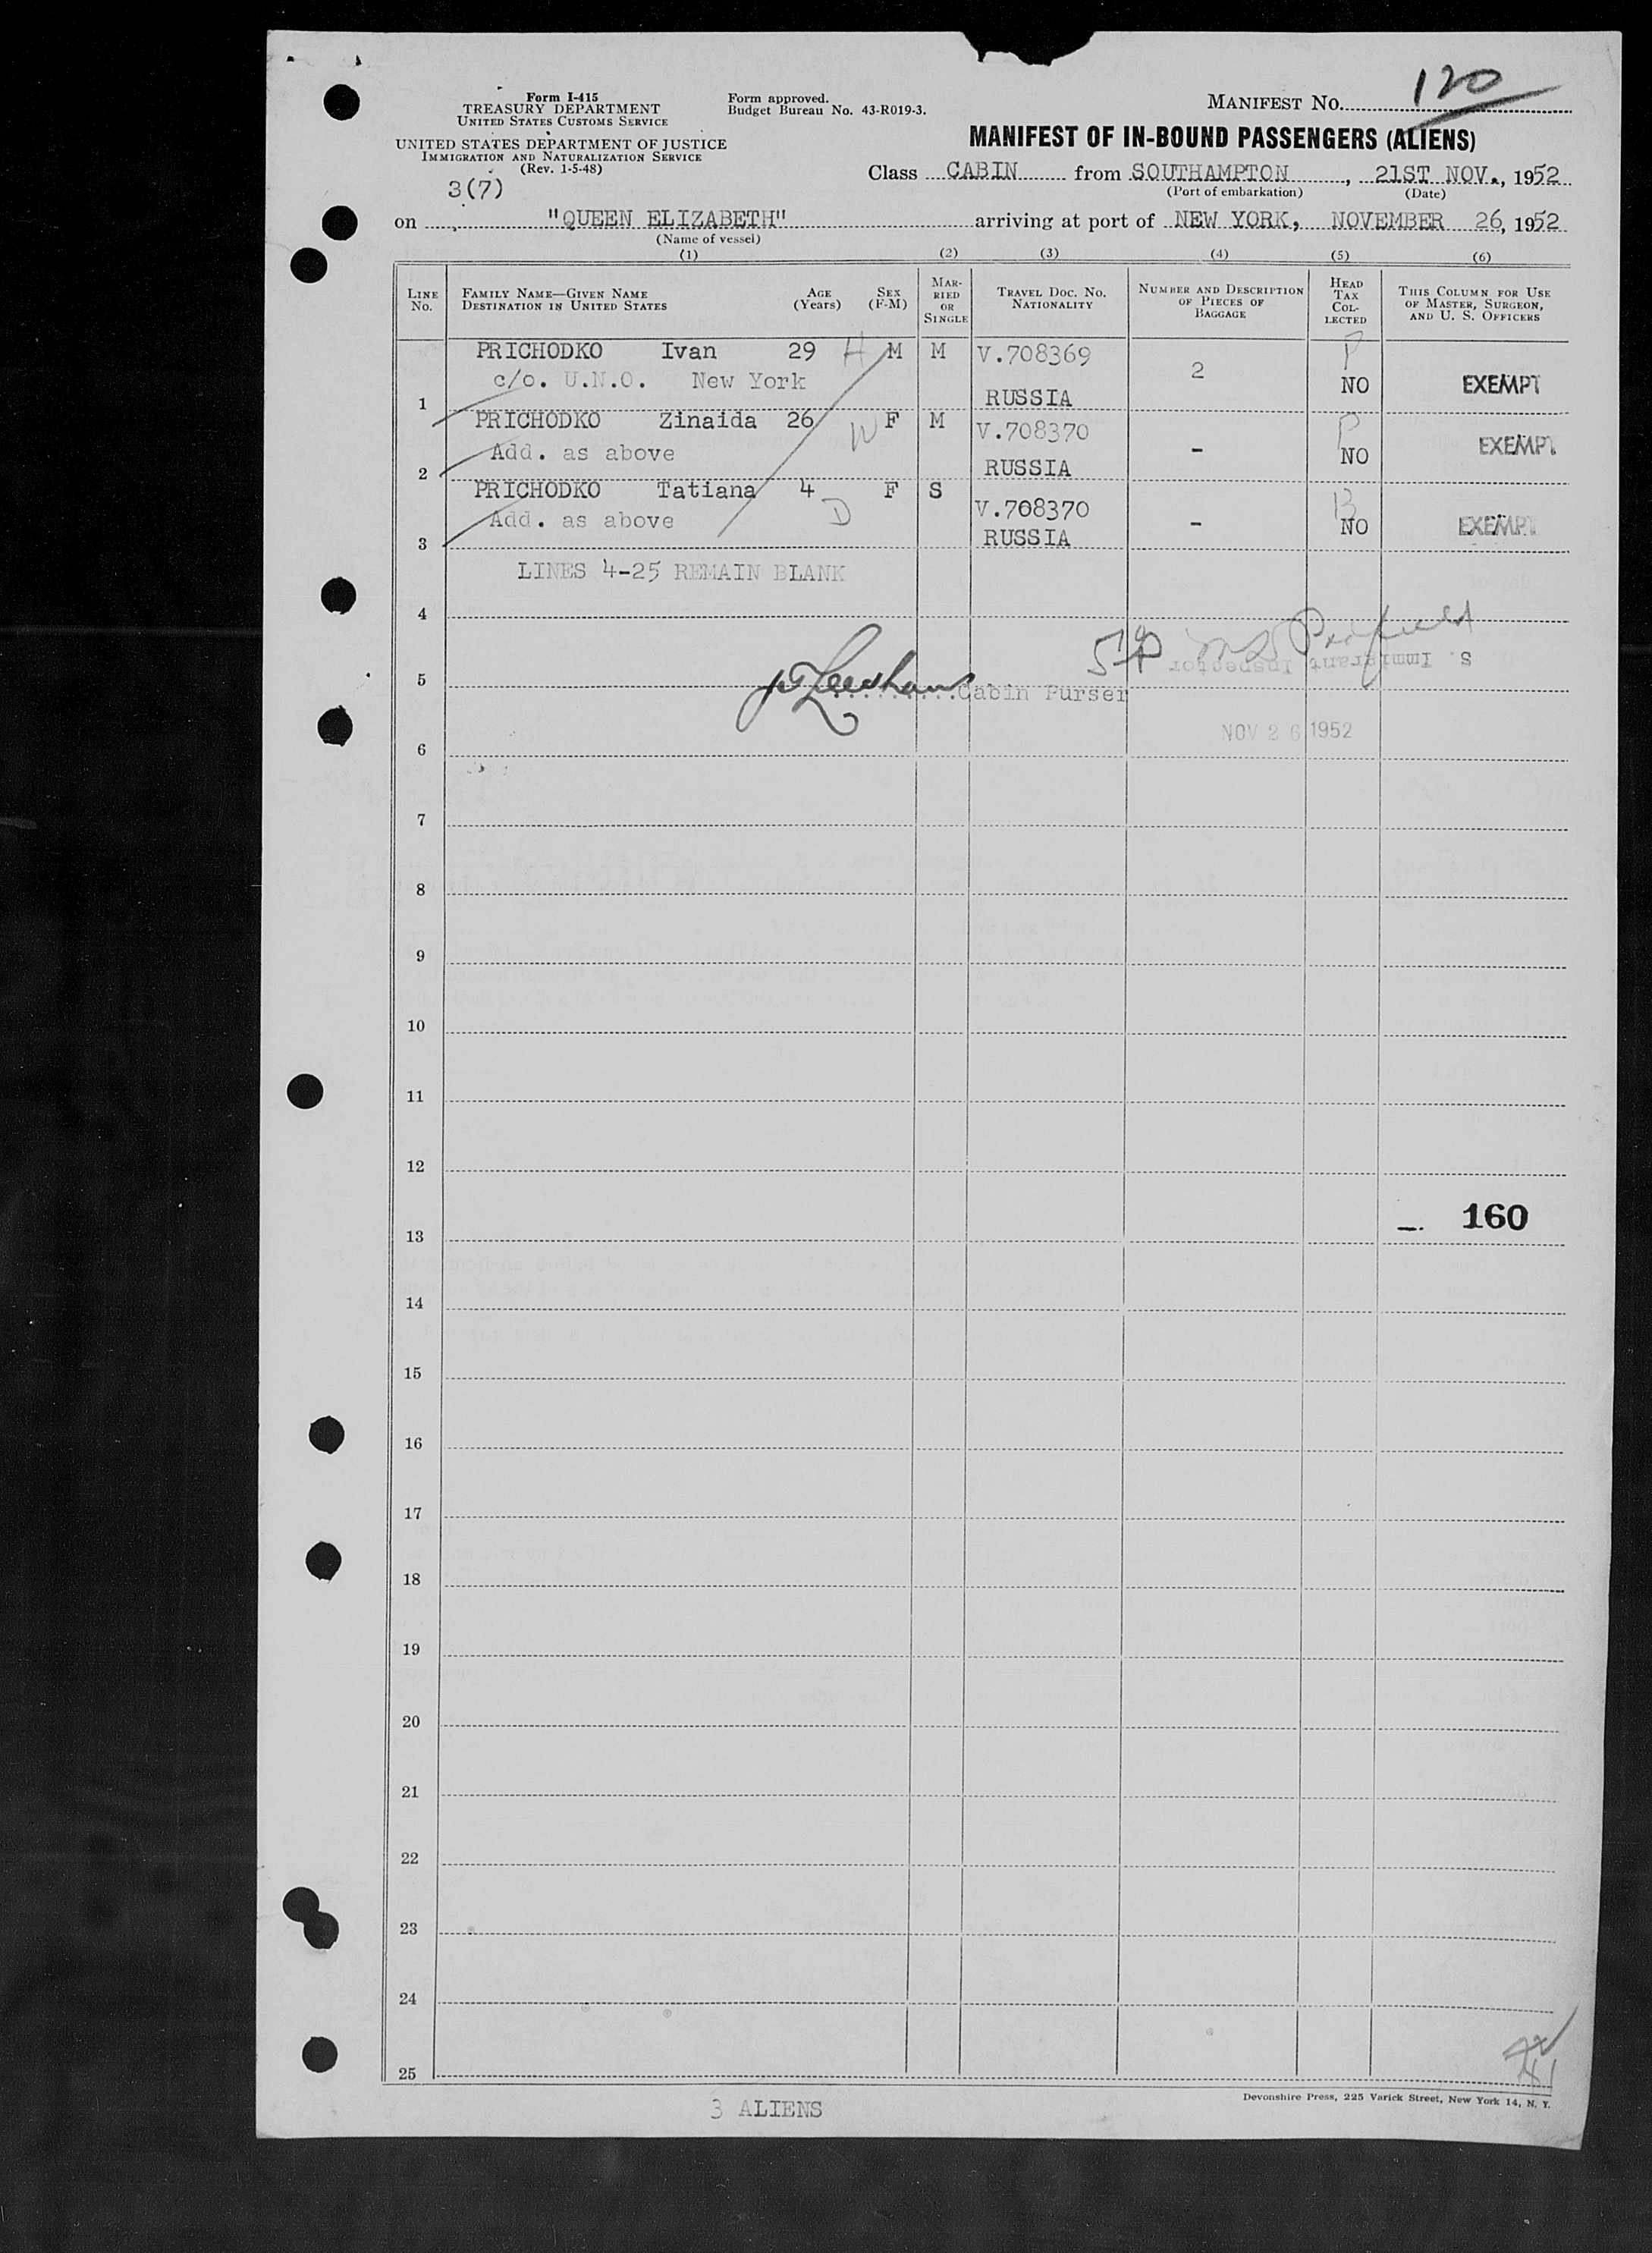 120
Form I-415
TREASURY DEPARTMENT
UNITED STATES CUSTOMS SERVICE
Form approved.
Budget Bureau No. 43-R019-3.
MANIFEST NO.
UNITED STATES DEPARTMENT OF JUSTICE
IMMIGRATION AND NATURALIZATION SERVICE
(Rev. 1-5-48)
MANIFEST OF IN-BOUND PASSENGERS (ALIENS)
Class CABIN from SOUTHAMPTON, 21ST NOV., 1952
(Port of embarkation) (Date)
3(7)
on "QUEEN ELIZABETH" arriving at port of NEW YORK, NOVEMBER 26, 1952
(Name of vessel)
(1) (2) (3) (4) (5) (6)
LINE NO. FAMILY NAME—GIVEN NAME DESTINATION IN UNITED STATES AGE (Years) SEX (F-M) MARRIED OR SINGLE TRAVEL DOC. NO. NATIONALITY NUMBER AND DESCRIPTION OF PIECES OF BAGGAGE HEAD TAX COLLECTED THIS COLUMN FOR USE OF MASTER, SURGEON, AND U. S. OFFICERS
PRICHODKO Ivan 29 H M M V.708369 P
c/o. U.N.O. New York 2 NO EXEMPT
1 RUSSIA
PRICHODKO Zinaida 26 W F M V.708370 P
Add. as above - NO EXEMPT
2 RUSSIA
PRICHODKO Tatiana 4 D F S V.708370 B
Add. as above - NO EXEMPT
3 RUSSIA
LINES 4-25 REMAIN BLANK
4
S. Immigrant Inspector
5 Cabin Purser
NOV 26 1952
6
7
8
9
10
11
12
160
13
14
15
16
17
18
19
20
21
22
23
24
25
3 ALIENS
Devonshire Press, 225 Varick Street, New York 14, N. Y.